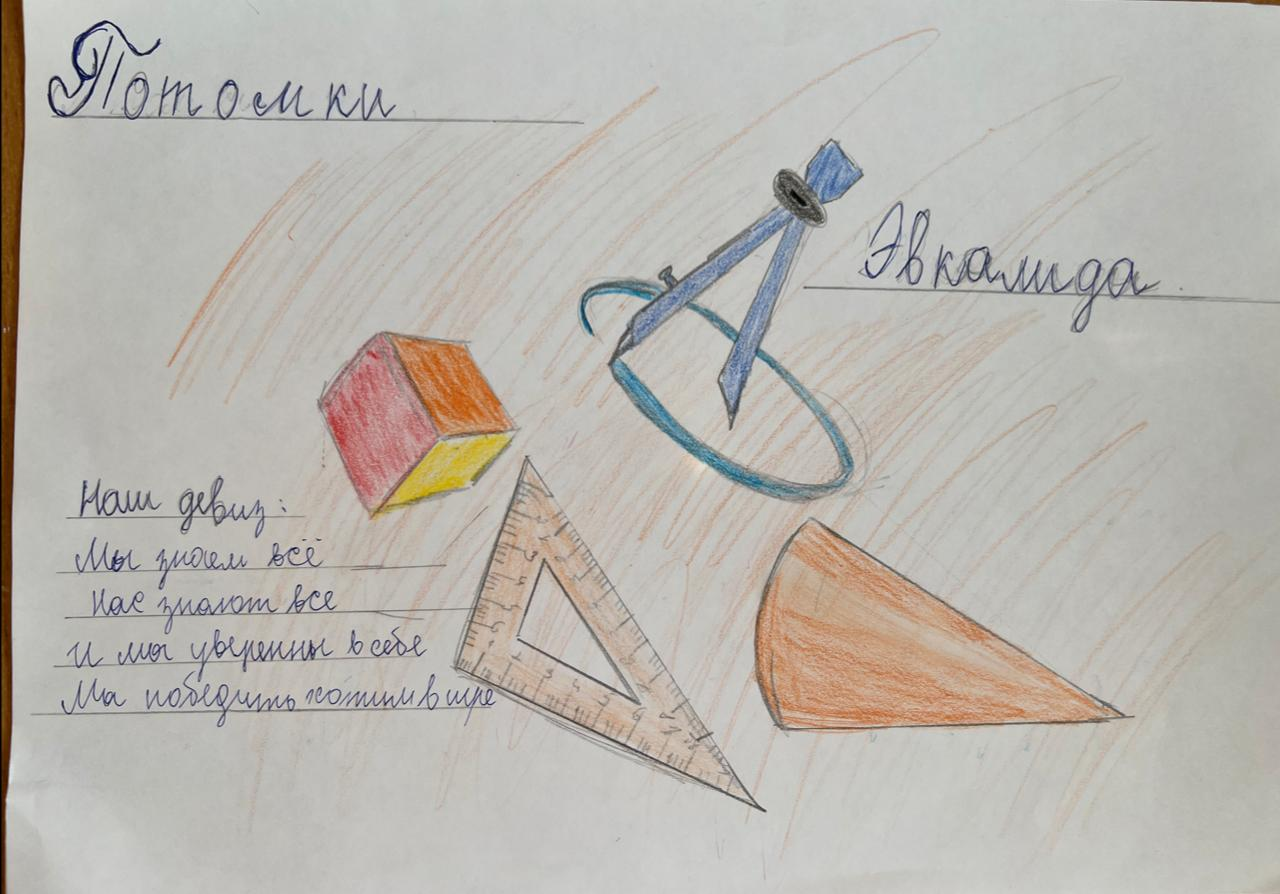 Потомки
Эвкалида.
Наш девиз:
Мы знаем всё
Нас знают все
И мы уверенны в себе
Мы победить хотим в игре